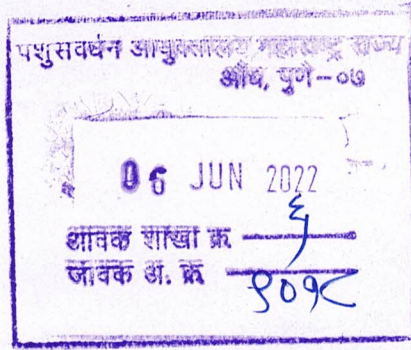 पशुसवर्धन आयुक्तालय महाराष्ट्र राज्य
औंध, पुणे-०७
06 JUN 2022
आवक शाखा क्र ६
जावक अ. क्र ९०१८